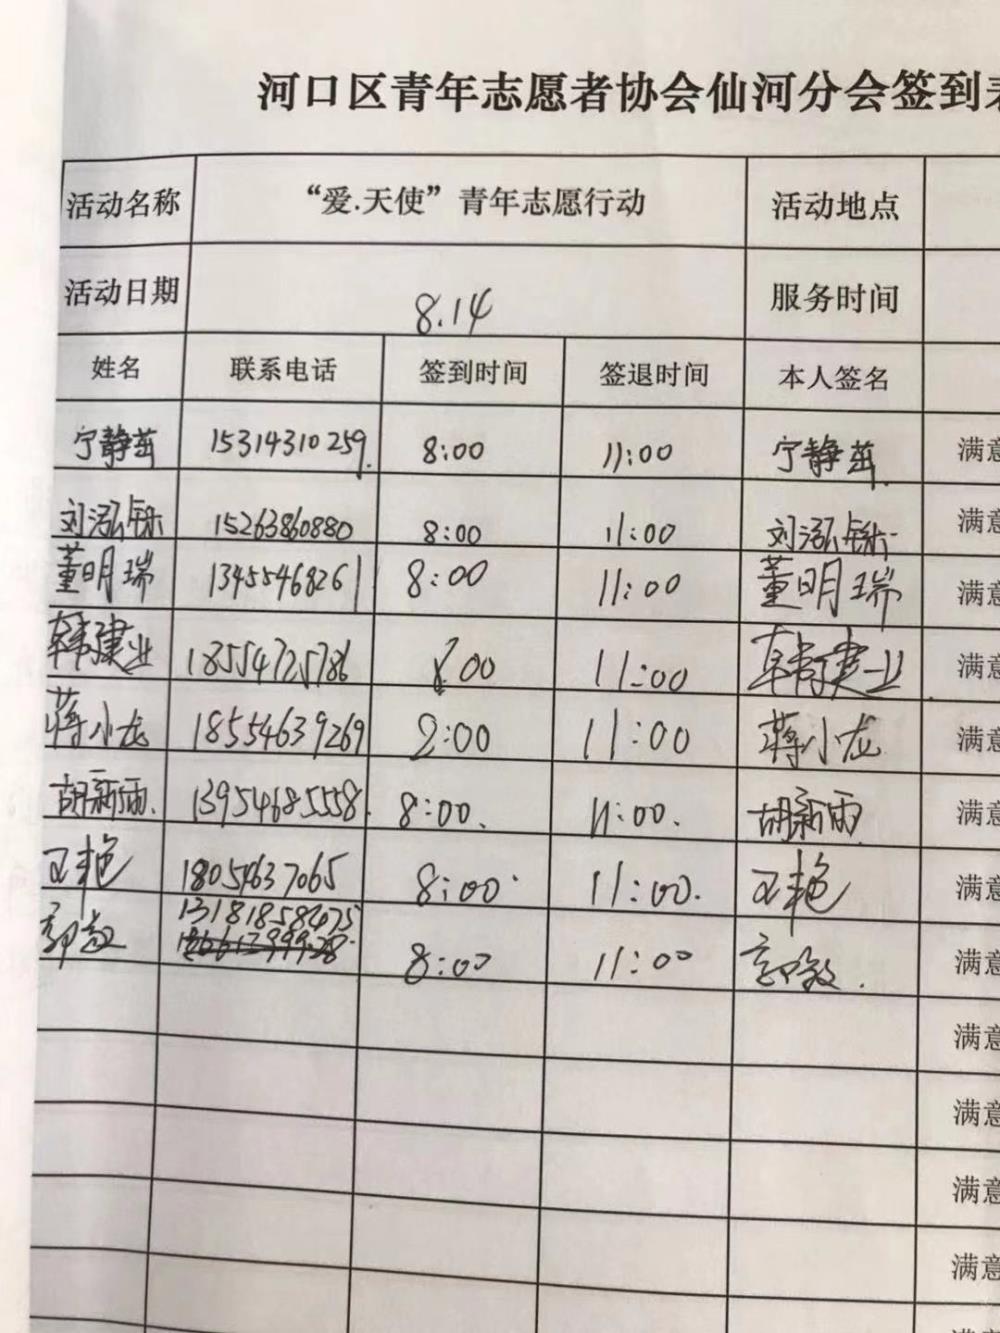 河口区青年志愿者协会仙河分会签到表
活动名称 “爱.天使”青年志愿行动 活动地点
活动日期 8.14 服务时间
姓名 联系电话 签到时间 签退时间 本人签名
宁静茁 15314310259. 8:00 11:00 宁静茁. 满意
刘泓铄 15263860880 8:00 11:00 刘泓铄 满意
董明瑞 13455468261 8:00 11:00 董明瑞 满意
韩建业 18554725786 8:00 11:00 韩建业 满意
蒋小龙 18554639269 2:00 11:00 蒋小龙 满意
胡新雨. 13954685558. 8:00. 11:00. 胡新雨 满意
王艳 18054637065 8:00 11:00. 王艳 满意
13181858675
郭敏 8:00 11:00 郭敏. 满意
满意
满意
满意
满意